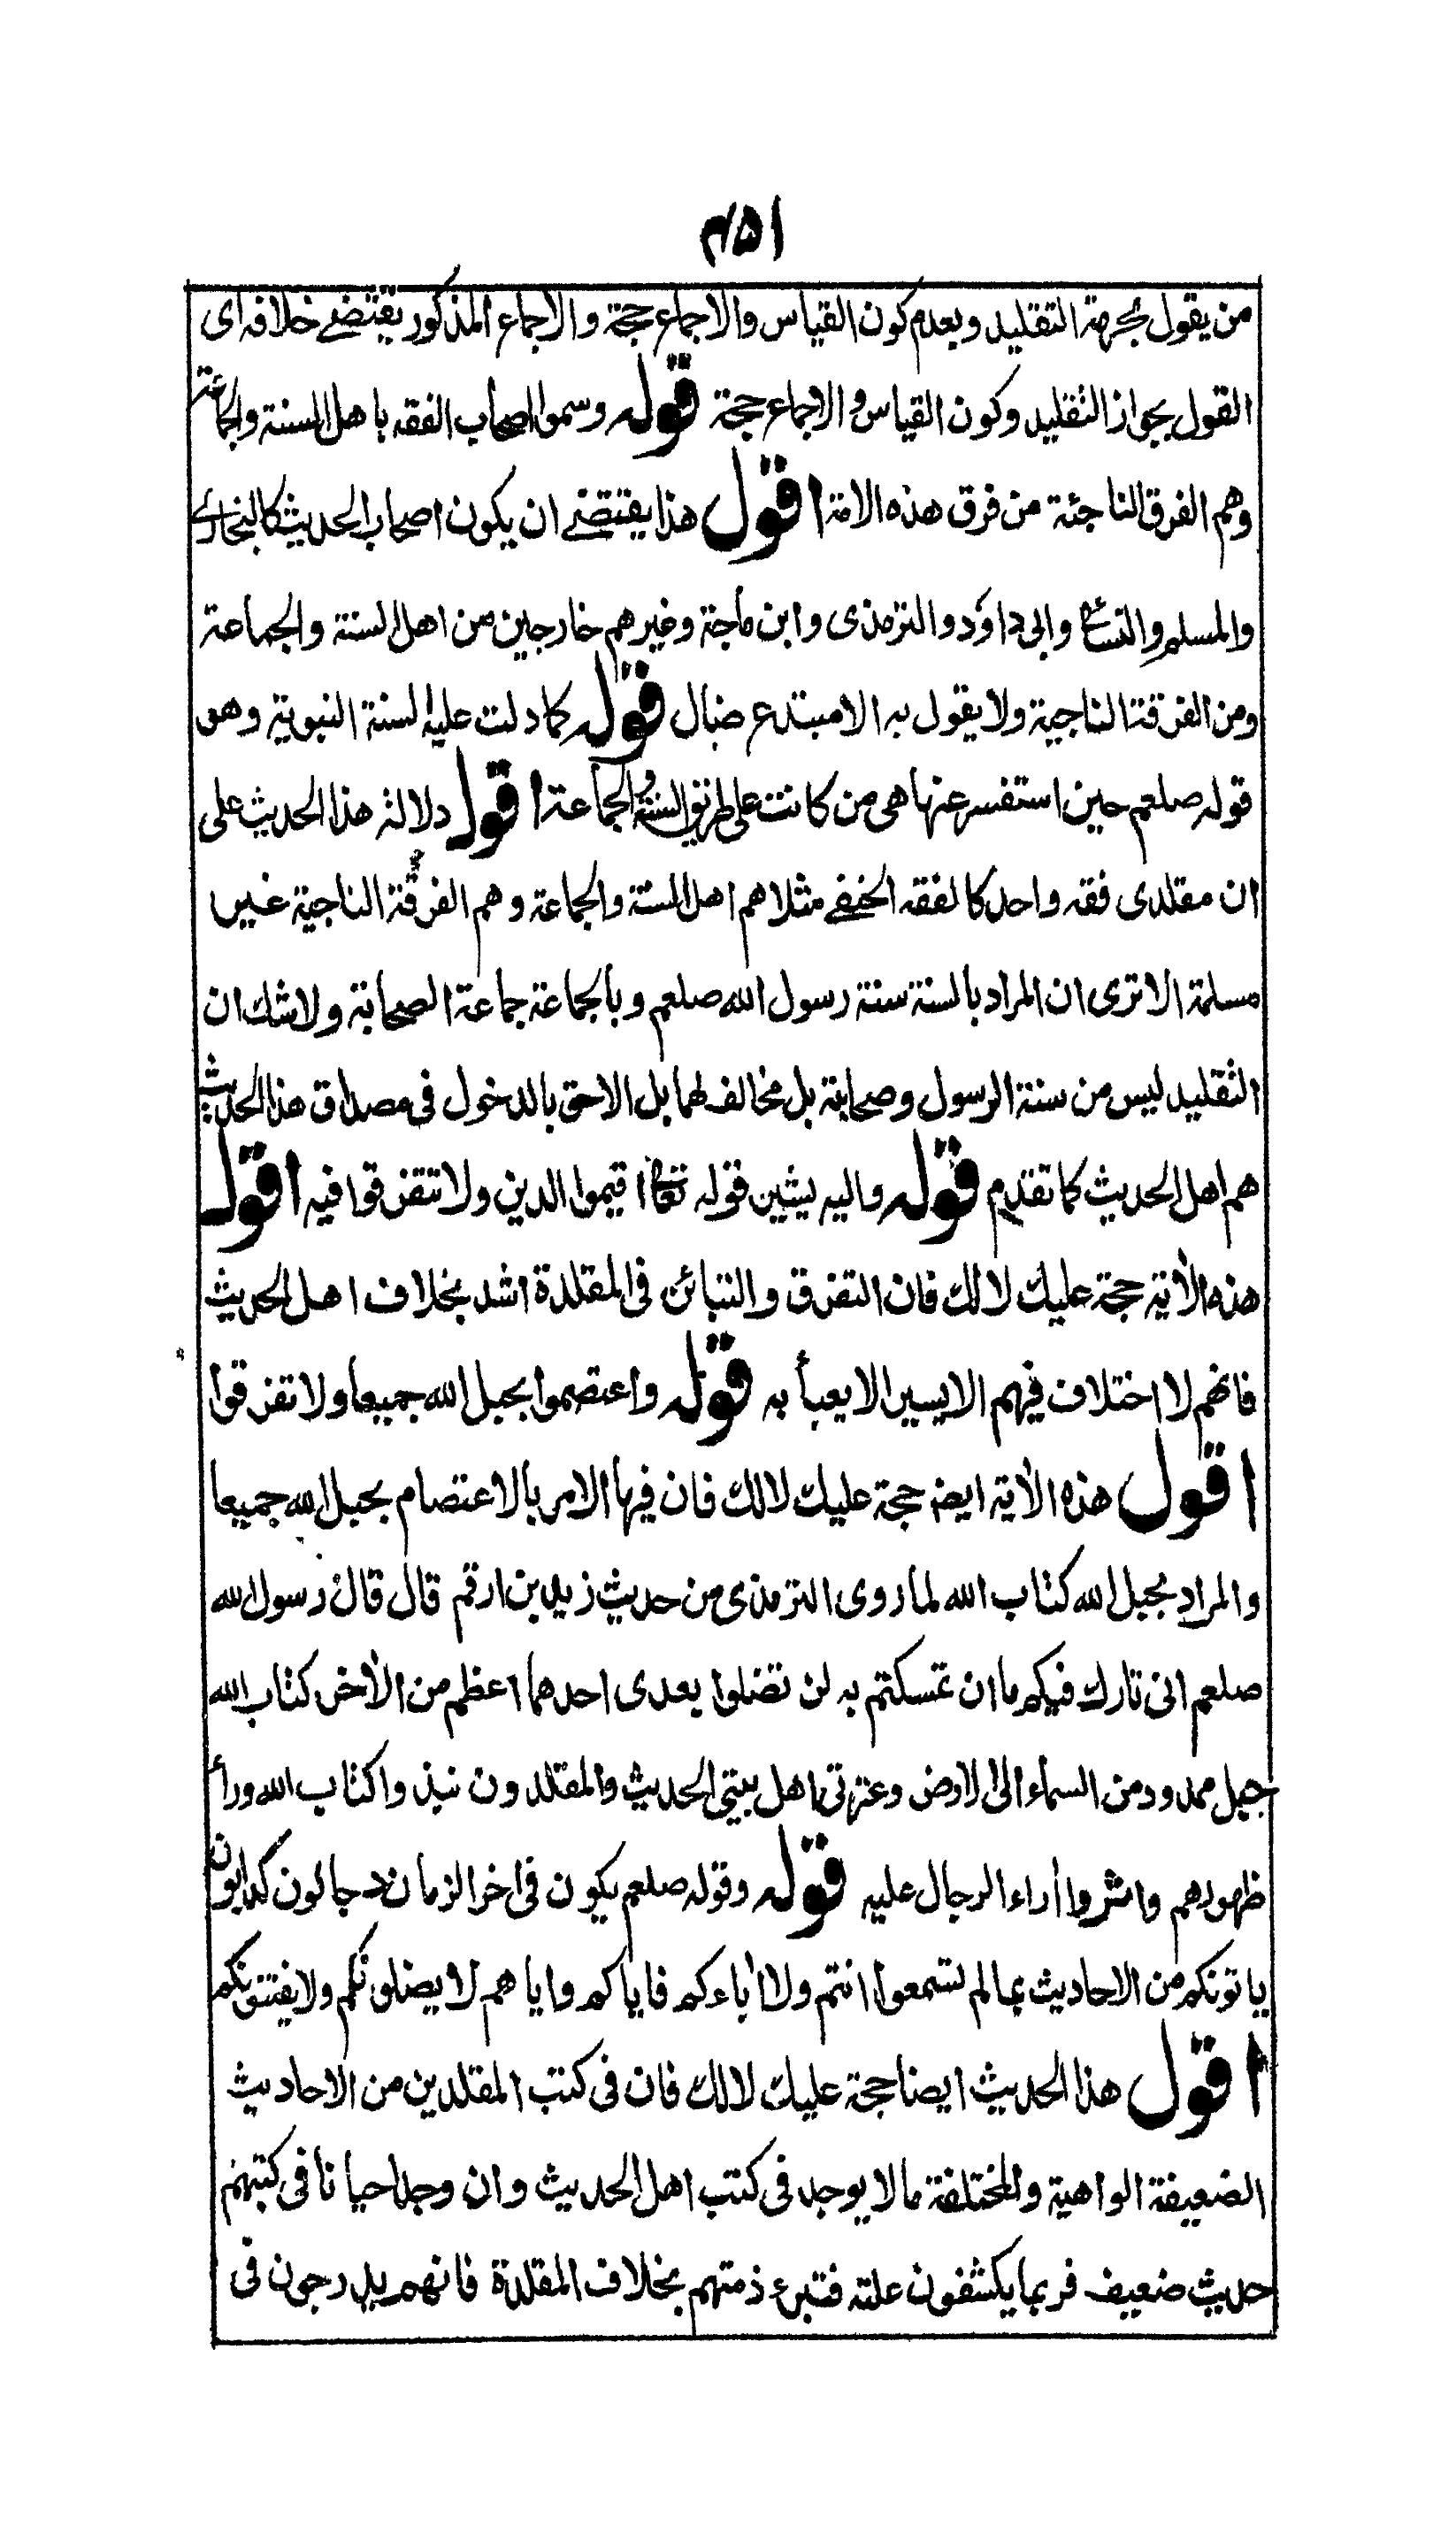 ۴۵۱
من يقول بحرمة التقليد وبعدم كون القياس والاجماع حجة والاجماع المذكور يقتضے خلافه اى
القول بجواز التقليد وكون القياس والاجماع حجة قوله وسموا اصحاب الفقه باهل السنة والجماعة
وهم الفرق الناجئة من فرق هذه الامة اقول هذا يقتضے ان يكون اصحاب الحديث كالبخارے
والمسلم والنسائے وابى داؤد والترمذى وابن ماجة وغيرهم خارجين من اهل السنة والجماعة
ومن الفرقة الناجية ولا يقول به الا مبتدع ضال قوله كما دلت عليه السنة النبوية وهو
قوله صلعم حين استفسر عنها هى من كانت على طريق السنة والجماعة اقول دلالة هذا الحديث على
ان مقلدى فقه واحد كالفقه الحنفے مثلا هم اهل السنة والجماعة وهم الفرقة الناجية غير
مسلمة الا ترى ان المراد بالسنة سنة رسول الله صلعم وبالجماعة جماعة الصحابة ولا شك ان
التقليد ليس من سنة الرسول وصحابته بل مخالف لهما بل الاحق بالدخول فى مصداق هذا الحديث
هم اهل الحديث كما تقدم قوله واليه يشير قوله تعالى اقيموا الدين ولا تتفرقوا فيه اقول
هذه الاٰية حجة عليك لا لك فان التفرق والتبائن فى المقلدة اشد بخلاف اهل الحديث
فانهم لا اختلاف فيهم الا يسير الا يعبأ به قوله واعتصموا بحبل الله جميعا ولا تفرقوا
اقول هذه الاٰية ايضا حجة عليك لا لك فان فيها الامر بالاعتصام بحبل الله جميعا
والمراد بحبل الله كتاب الله لما روى الترمذى من حديث زيد بن ارقم قال قال رسول الله
صلعم انى تارك فيكم ما ان تمسكتم به لن تضلوا بعدى احدهما اعظم من الاٰخر كتاب الله
حبل ممدود من السماء الى الارض وعترتى اهل بيتى الحديث والمقلدون نبذوا كتاب الله وراء
ظهورهم واٰثروا اٰراء الرجال عليه قوله وقوله صلعم يكون فى اخر الزمان دجالون كذابون
ياتونكم من الاحاديث بمالم تسمعوا انتم ولا اٰباءكم فاياكم واياهم لا يضلونكم ولا يفتنونكم
اقول هذا الحديث ايضا حجة عليك لا لك فان فى كتب المقلدين من الاحاديث
الضعيفة الواهية والمختلقة ما لا يوجد فى كتب اهل الحديث وان وجد احيانا فى كتبهم
حديث ضعيف فربما يكشفون علته فتبرء ذمتهم بخلاف المقلدة فانهم يدرجون فى